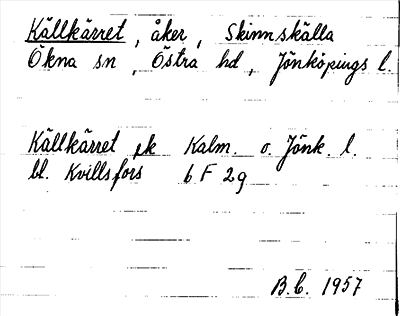 Källkärret, åker, Skinnskälla
Ökna sn, Östra hd, Jönköpings l.
Källkärret, ek Kalm. o. Jönk. l.
bl. Kvillsfors 6 F 2g
B.C. 1957